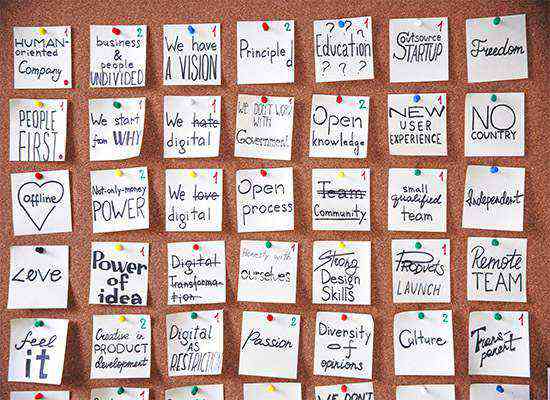 HUMAN-
oriented
Company
1
business
&
people
UNDIVIDED
2
We have
A VISION
1
Principled
Education
? ? ?
? ? ?
outsource
STARTUP
1
Freedom
PEOPLE
FIRST
1
We start
from WHY
We hate
digital
1
WE DON'T WORK
WITH
Government
Open
knowledge
2
NEW
USER
EXPERIENCE
NO
COUNTRY
offline
1
Not-only-money
POWER
2
We love
digital
1
Open
process
1
Team
Community
small
qualified
team
1
Independent
Love
Power
of
idea
2
Digital
Transforma-
tion
1
Honesty with
ourselves
1
Strong
Design
Skills
Products
LAUNCH
1
Remote
TEAM
feel
it
Creative in
PRODUCT
development
2
Digital
AS
RESTRICTION
1
Passion
2
Diversity
of
opinions
2
Culture
2
Trans-
parent
1
WE DON'T